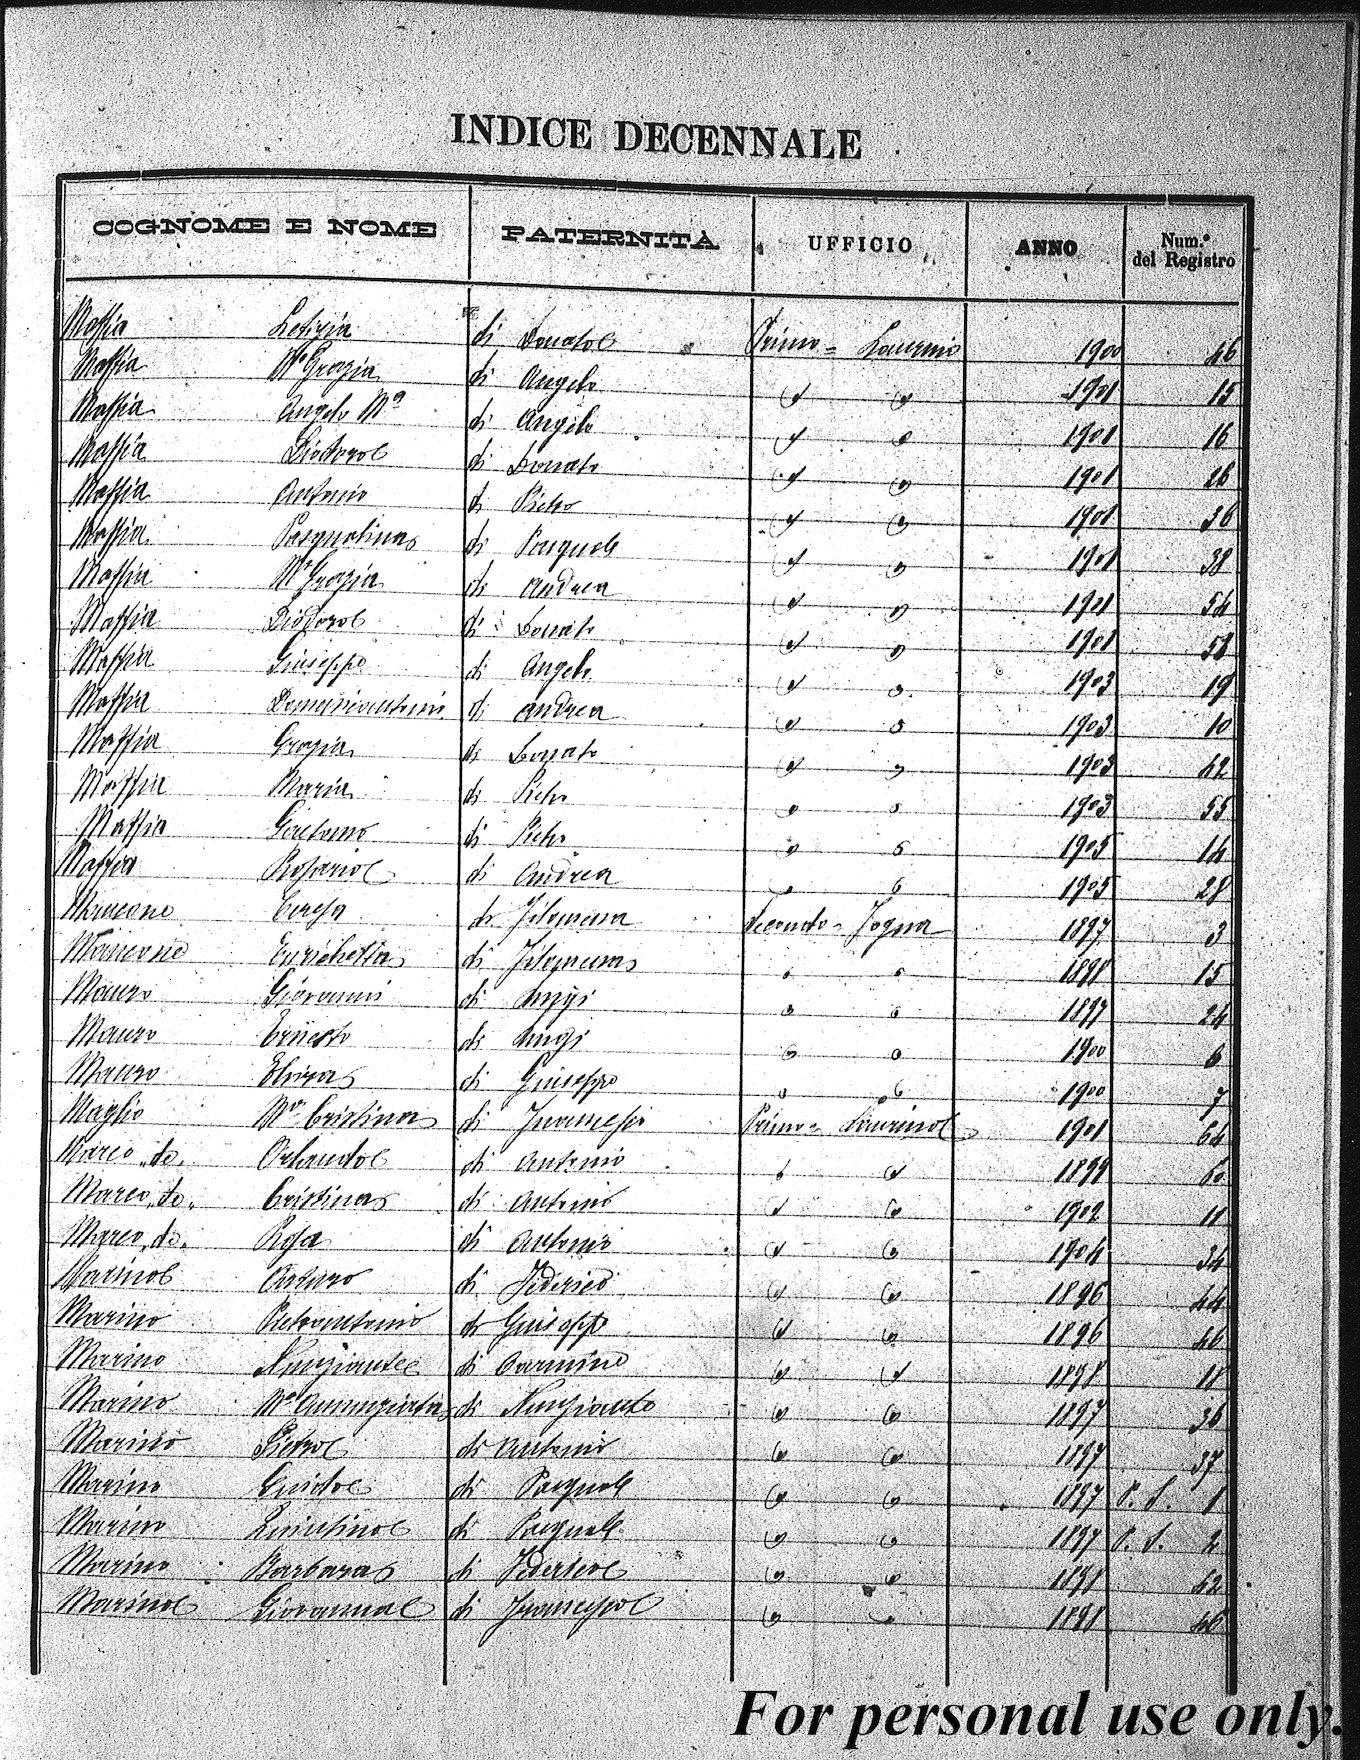 INDICE DECENNALE
COGNOME E NOME PATERNITÀ UFFICIO ANNO Num.° del Registro
Maffia Letizia di Donato Primo = Laurino 1900 46
Maffia Mª Grazia di Angelo " " 1901 15
Maffia Angelo Mª di Angelo " " 1901 16
Maffia Diodoro di Donato " " 1901 26
Maffia Antonio di Pietro " " 1901 36
Maffia Pasqualina di Pasquale " " 1901 38
Maffia Mª Grazia di Andrea " " 1901 54
Maffia Diodoro di Donato " " 1901 58
Maffia Giuseppe di Angelo " " 1903 19
Maffia Domenicantonio di Andrea " " 1903 10
Maffia Grazia di Donato " " 1903 42
Maffia Maria di Pietro " " 1903 55
Maffia Gaetano di Pietro " " 1905 14
Maffia Rosario di Andrea " " 1905 28
Mancone Teresa di Filomena Secondo = Fogna 1897 3
Mancone Enrichetta di Filomena " " 1898 15
Mauro Giovanni di Luigi " " 1897 24
Mauro Ernesto di Luigi " " 1900 6
Mauro Elvira di Giuseppe " " 1900 7
Maglio Mª Cristina di Francesco Primo = Laurino 1901 64
Marco "de" Orlando di Antonio " " 1899 60
Marco "de" Cristina di Antonio " " 1902 11
Marco "de" Rosa di Antonio " " 1904 34
Marino Arturo di Federico " " 1896 44
Marino Pietrantonio di Giuseppe " " 1896 46
Marino Nunziante di Carmine " " 1898 18
Marino Mª Annunziata di Nunziante " " 1897 36
Marino Pietro di Antonio " " 1897 37
Marino Guido di Pasquale " " 1897 P. S. 1
Marino Quintino di Pasquale " " 1897 P. S. 2
Marino Barbara di Federico " " 1898 42
Marino Giovanna di Francesco " " 1898 46
For personal use only.